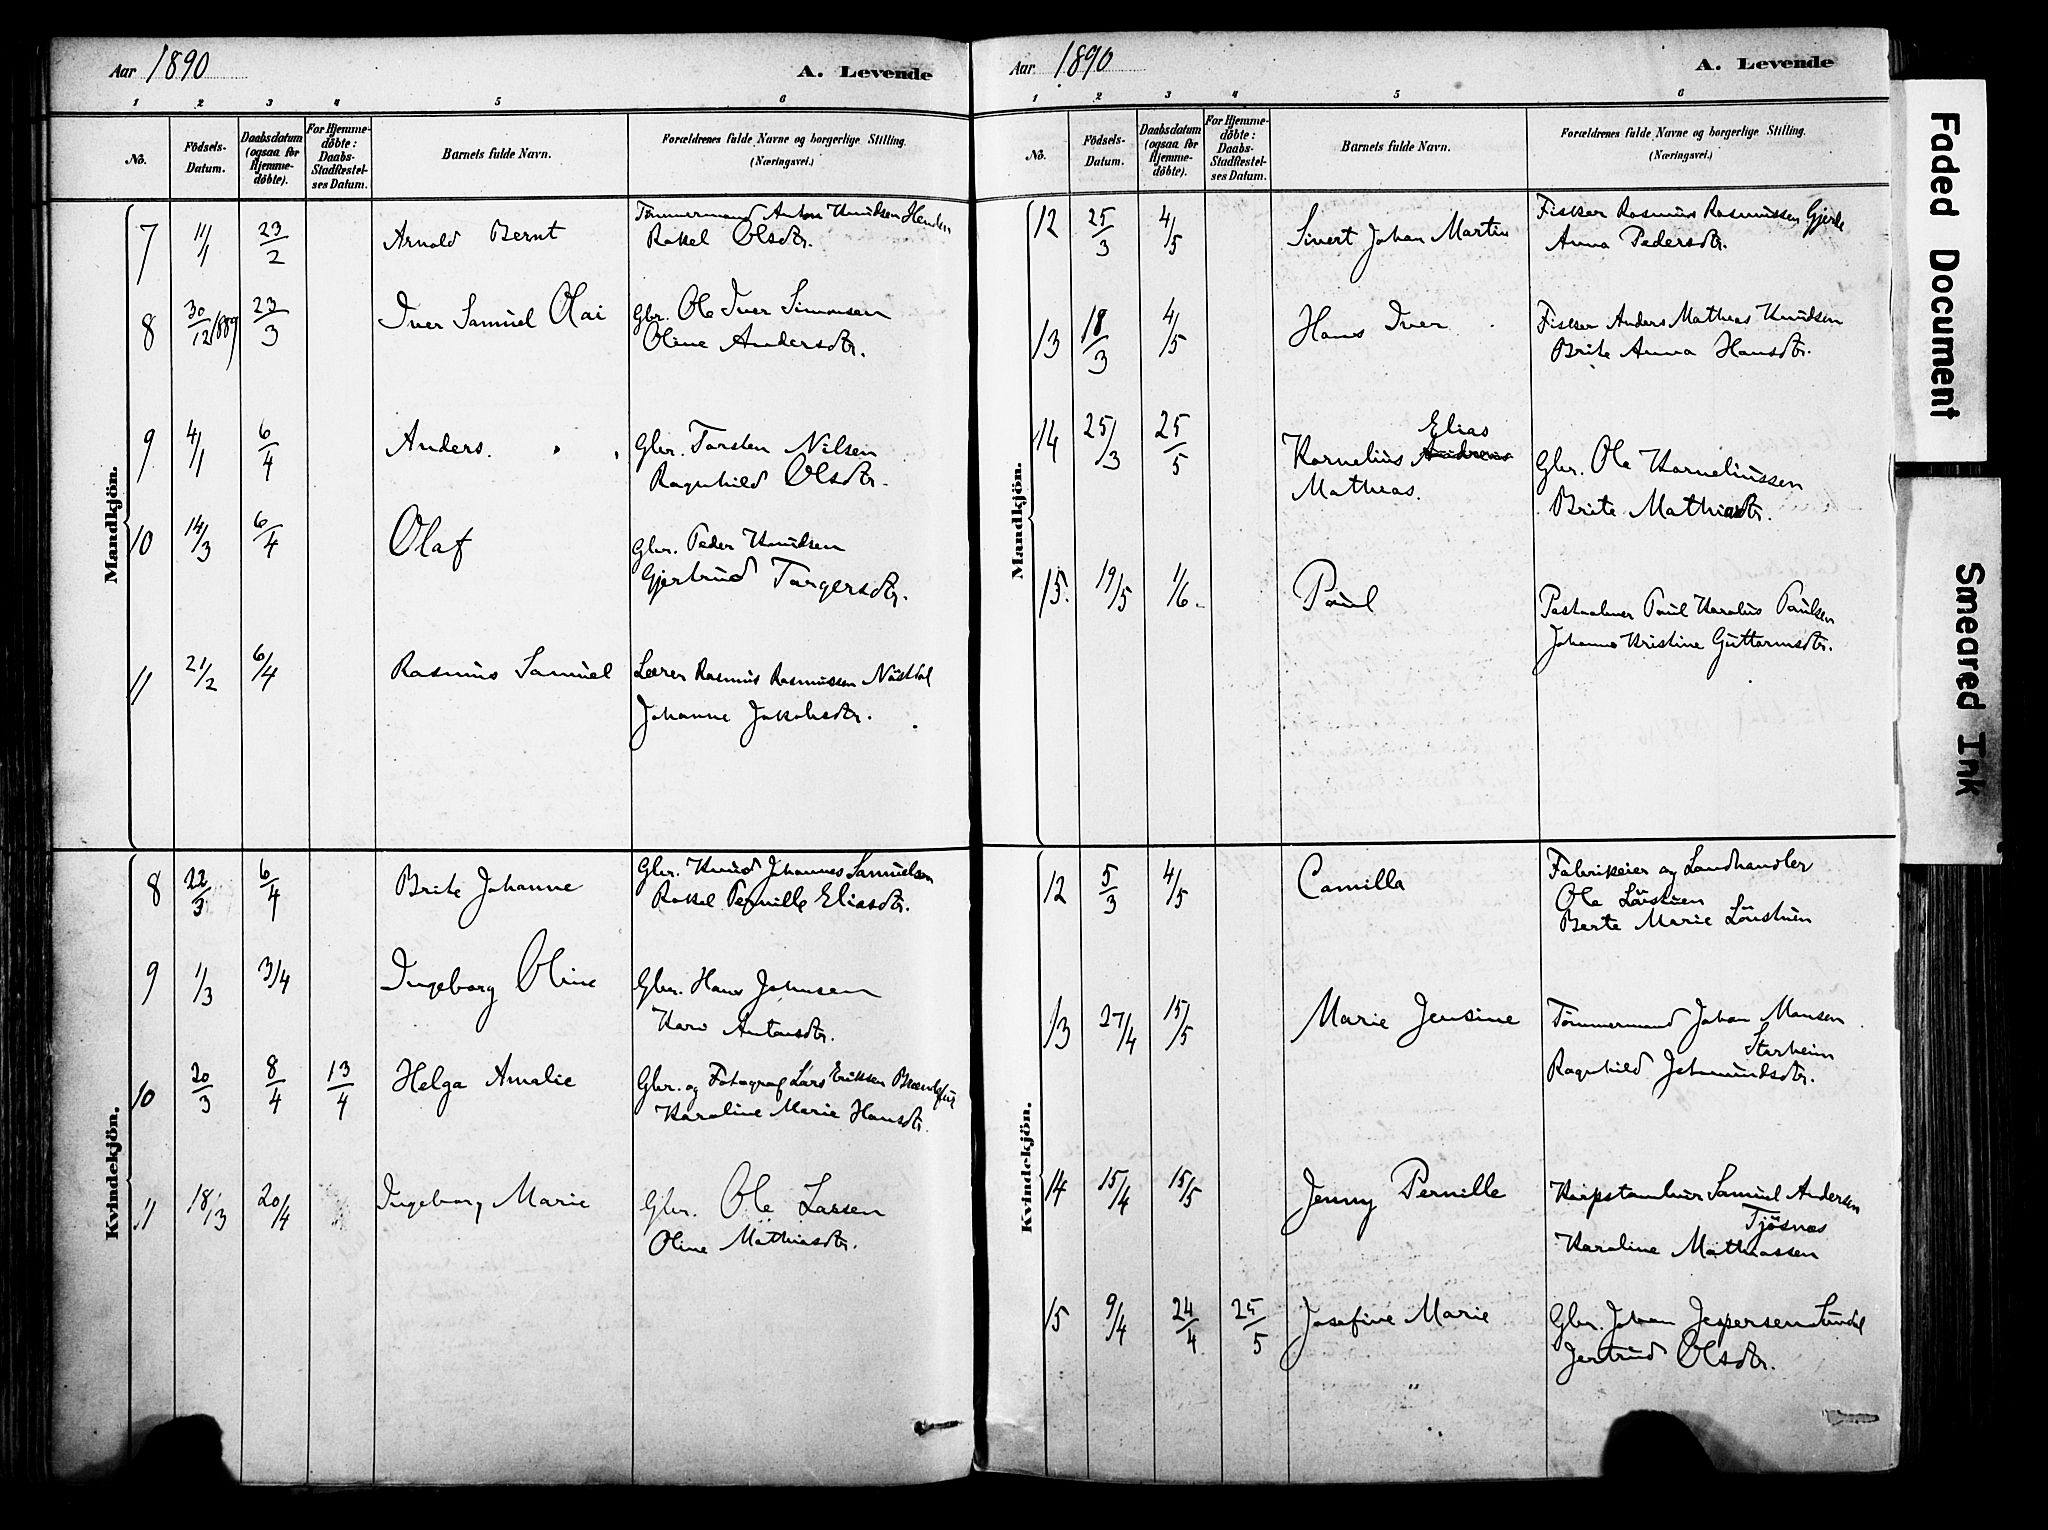 Aar 1890 A. Levende
1 2 3 4 5 6
No. Födsels-Datum. Daabsdatum (ogsaa for Hjemme-döbte). For Hjemme-döbte: Daabs-Stadfæstel-ses Datum. Barnets fulde Navn. Forældrenes fulde Navne og borgerlige Stilling. (Næringsvei.)
Mandkjön.
7 11/1 23/2 Arnold Bernt Tømmermand Anton Knudsen
Rakel Olsdtr.
8 30/12 1889 23/3 Iver Samuel Olai Gbr. Ole Iver Simonsen
Oline Andersdtr.
9 4/1 6/4 Anders. Gbr. Torsten Nilsen
Ragnhild Olsdtr.
10 14/3 6/4 Olaf Gbr. Peder Knudsen
Gjertrud Torgersdtr.
11 21/2 6/4 Rasmus Samuel Lærer Rasmus Rasmussen Nösdal
Johanne Jakobsdtr.
Kvindekjön.
8 22/3 6/4 Brite Johanne Gbr. Knud Johannes Samuelsen
Rakel Pernille Eliasdtr.
9 1/3 3/4 Ingeborg Oline Gbr. Hans Johnsen
Kari Antonsdtr.
10 20/3 8/4 13/4 Helga Amalie Gbr. og Fotograf Lars Eriksen
Karoline Marie Hansdtr.
11 18/3 20/4 Ingeborg Marie Gbr. Ole Larsen
Oline Mathiasdtr.
Aar 1890 A. Levende
1 2 3 4 5 6
No. Födsels-Datum. Daabsdatum (ogsaa for Hjemme-döbte). For Hjemme-döbte: Daabs-Stadfæstel-ses Datum. Barnets fulde Navn. Forældrenes fulde Navne og borgerlige Stilling. (Næringsvei.)
Mandkjön.
12 25/3 4/5 Sivert Johan Martin Fisker Rasmus Rasmussen Gjerde
Anna Pedersdtr.
13 18/3 4/5 Hans Iver Fisker Anders Mathias Knudsen
Brite Anna Hansdtr.
14 25/3 25/5 Kornelius Andreas Elias
Mathias. Gbr. Ole Korneliussen
Brite Mathiasdtr.
15. 19/5 1/6 Paul Postaabner Paul Karolus Paulsen
Johanne Kristine Guttormsdtr.
Kvindekjön.
12 5/3 4/5 Camilla Fabrikeier og Landhandler
Ole Lövstuen
Berte Marie Lövstuen
13 27/4 15/5 Marie Jensine Tömmermand Johan Monsen
Starheim
Ragnhild Jetmundsdtr.
14 15/4 15/5 Jenny Pernille Samuel Andersen
Tjösnæs
Karoline Mathiassen
15 9/4 24/4 25/5 Josefine Marie Gbr. Johan Jespersen
Jertrud Olsdtr.
Faded Document
Smeared Ink